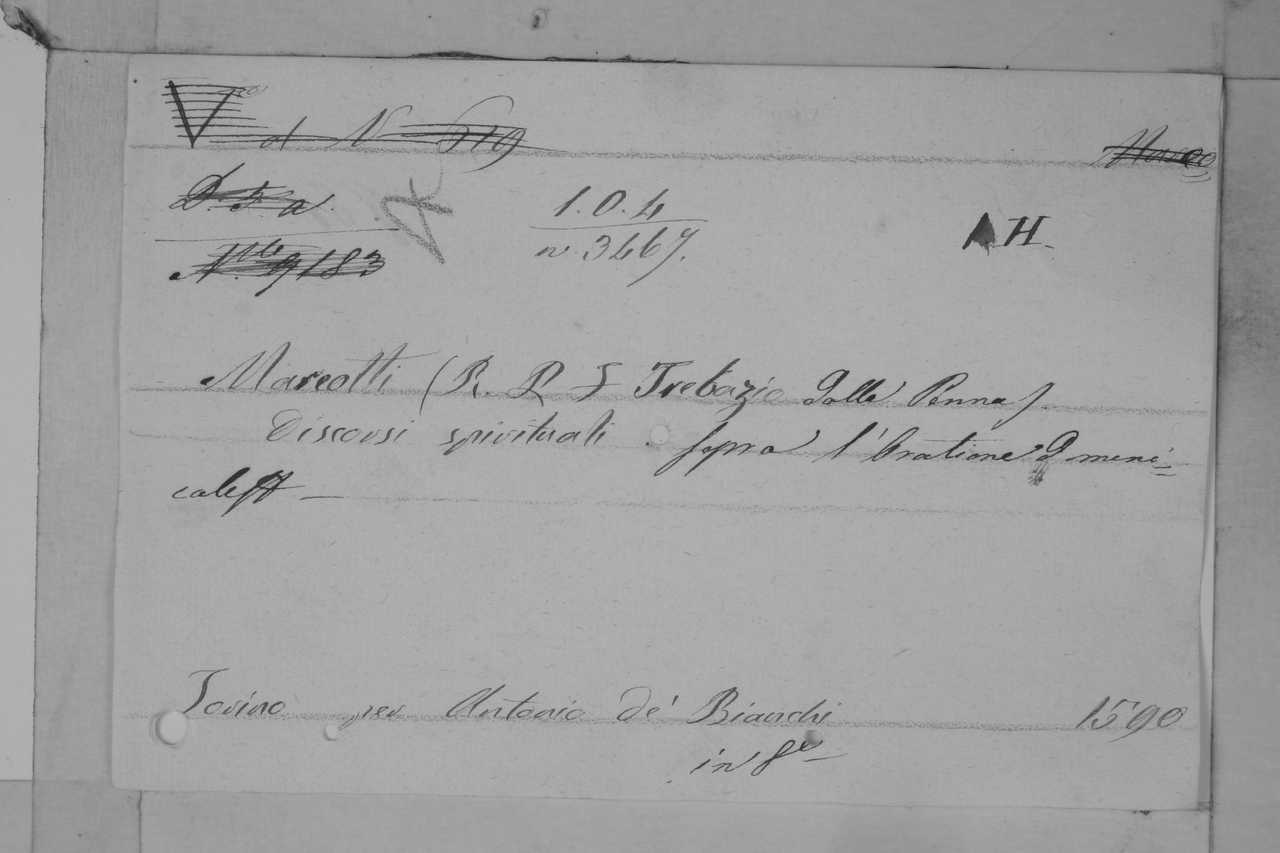 V d N 519
D. 5. a. 1. 0. 4 AH.
N. 9183 n. 3467.
Mareotti (R. P. F Trebazio dalla Penna).
Discorsi spirituali sopra l'Oratione Domeni=
cale
Torino per Antonio de' Bianchi 1590
in 8º